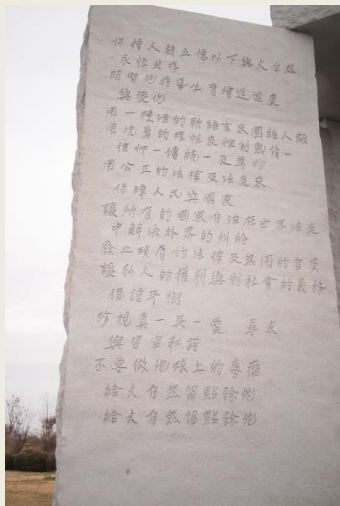 保持人類五億以下與大自然
永恆共存
明智地指導生育增進適度
與變化
用一種活的新語言來團結人類
用沈著的理性來控制熱情一
信仰一傳統一及萬物
用公正的法律及法庭來
保障人民與國家
讓所有的國家自治在世界法庭
中解決外界的糾紛
廢止瑣屑的法律及無用的官員
讓私人的權利與對社會的義務
保持平衡
珍視真一美一愛 尋求
與宇宙和諧
不要做地球上的毒瘤
給大自然留點餘地
給大自然留點餘地